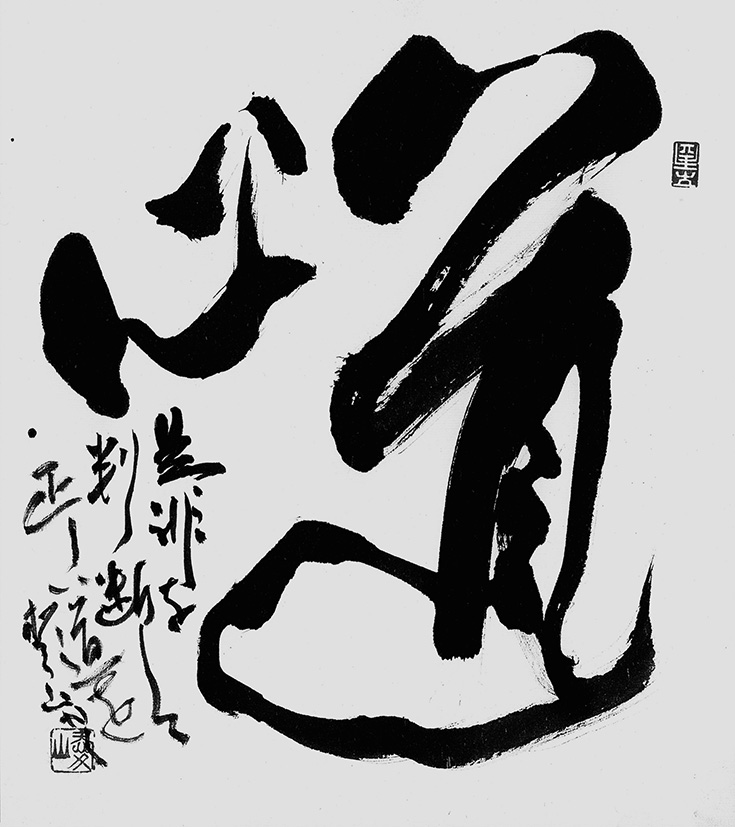 道心
是非を
判断して
正しい道を